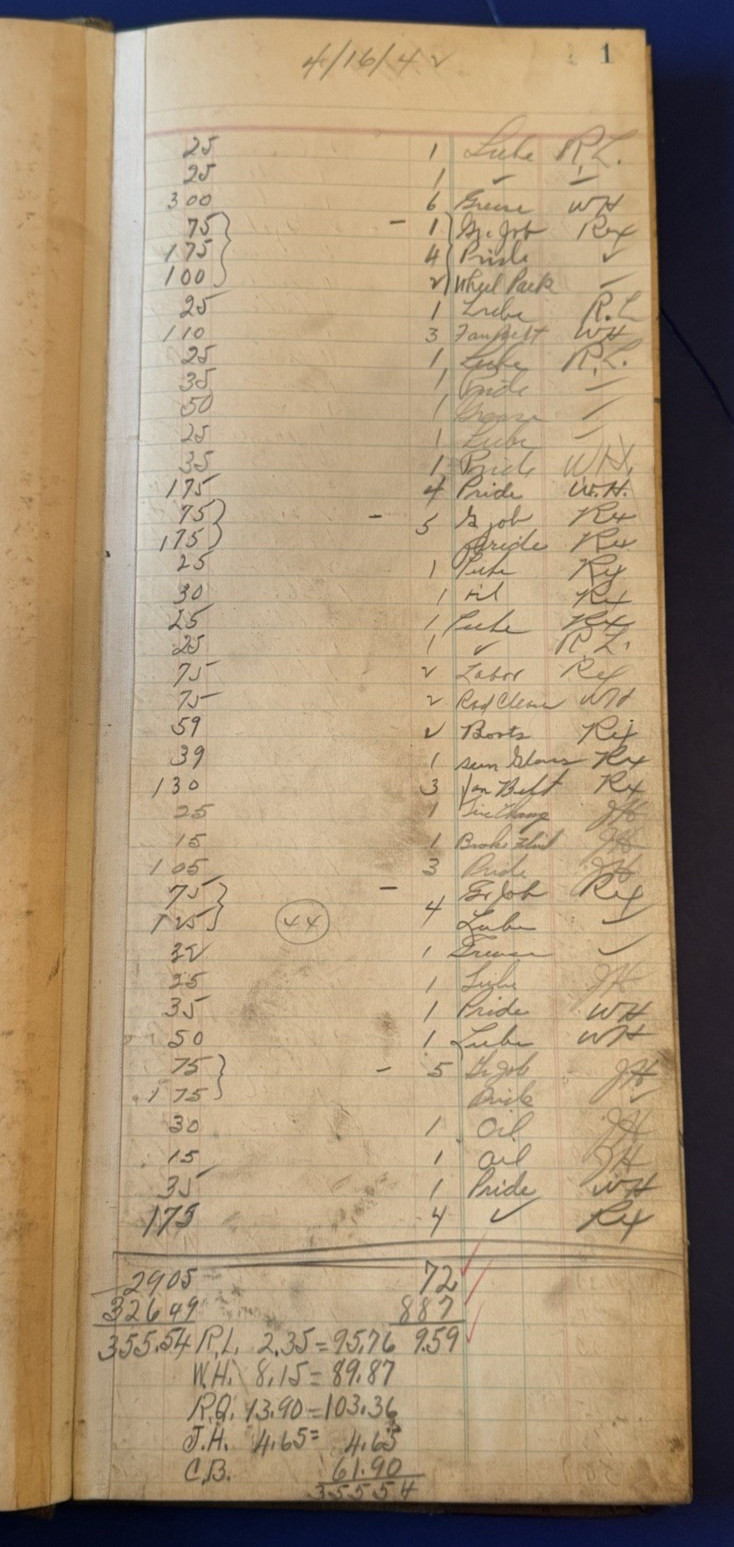 4/16/42 1
25 1 Lube R.L.
25 1 ✓ —
300 6 Grease WH
75 } — 1 Gr. Job Rex
175 } 4 Pride ✓
100 } 2 Wheel Pack —
25 1 Lube R.L
110 3 Fan Belt WH
25 1 Lube R.L.
35 1 Pride —
50 1 Grease —
25 1 Lube —
35 1 Pride WH.
175 4 Pride W.H.
75 } — 5 G job Rex
175 } Pride Rex
25 1 Lube Rex
30 1 oil Rex
25 1 Lube Rex
25 1 ✓ R.L.
75 2 Labor Rex
75 2 Rad Clean WH
59 2 Boots Rex
39 1 sun Glass Rex
130 3 Fan Belt Rex
25 1 JH
15 1 JH
105 3 Pride JH
75 } — 4 Gr Job Rex
125 } (44) Lube ✓
32 1 ✓
25 1 Lube JH
35 1 Pride WH
50 1 Lube WH
75 } — 5 Gr Job JH
175 } Pride ✓
30 1 Oil JH
15 1 Oil JH
35 1 Pride WH
175 4 ✓ Rex
2905 72
32649 887
355.54 R.L. 2.35=95.76 959
W.H. 8.15=89.87
R.Q. 13.90=103.36
J.H. 4.65= 4.65
C.B. 61.90
35554